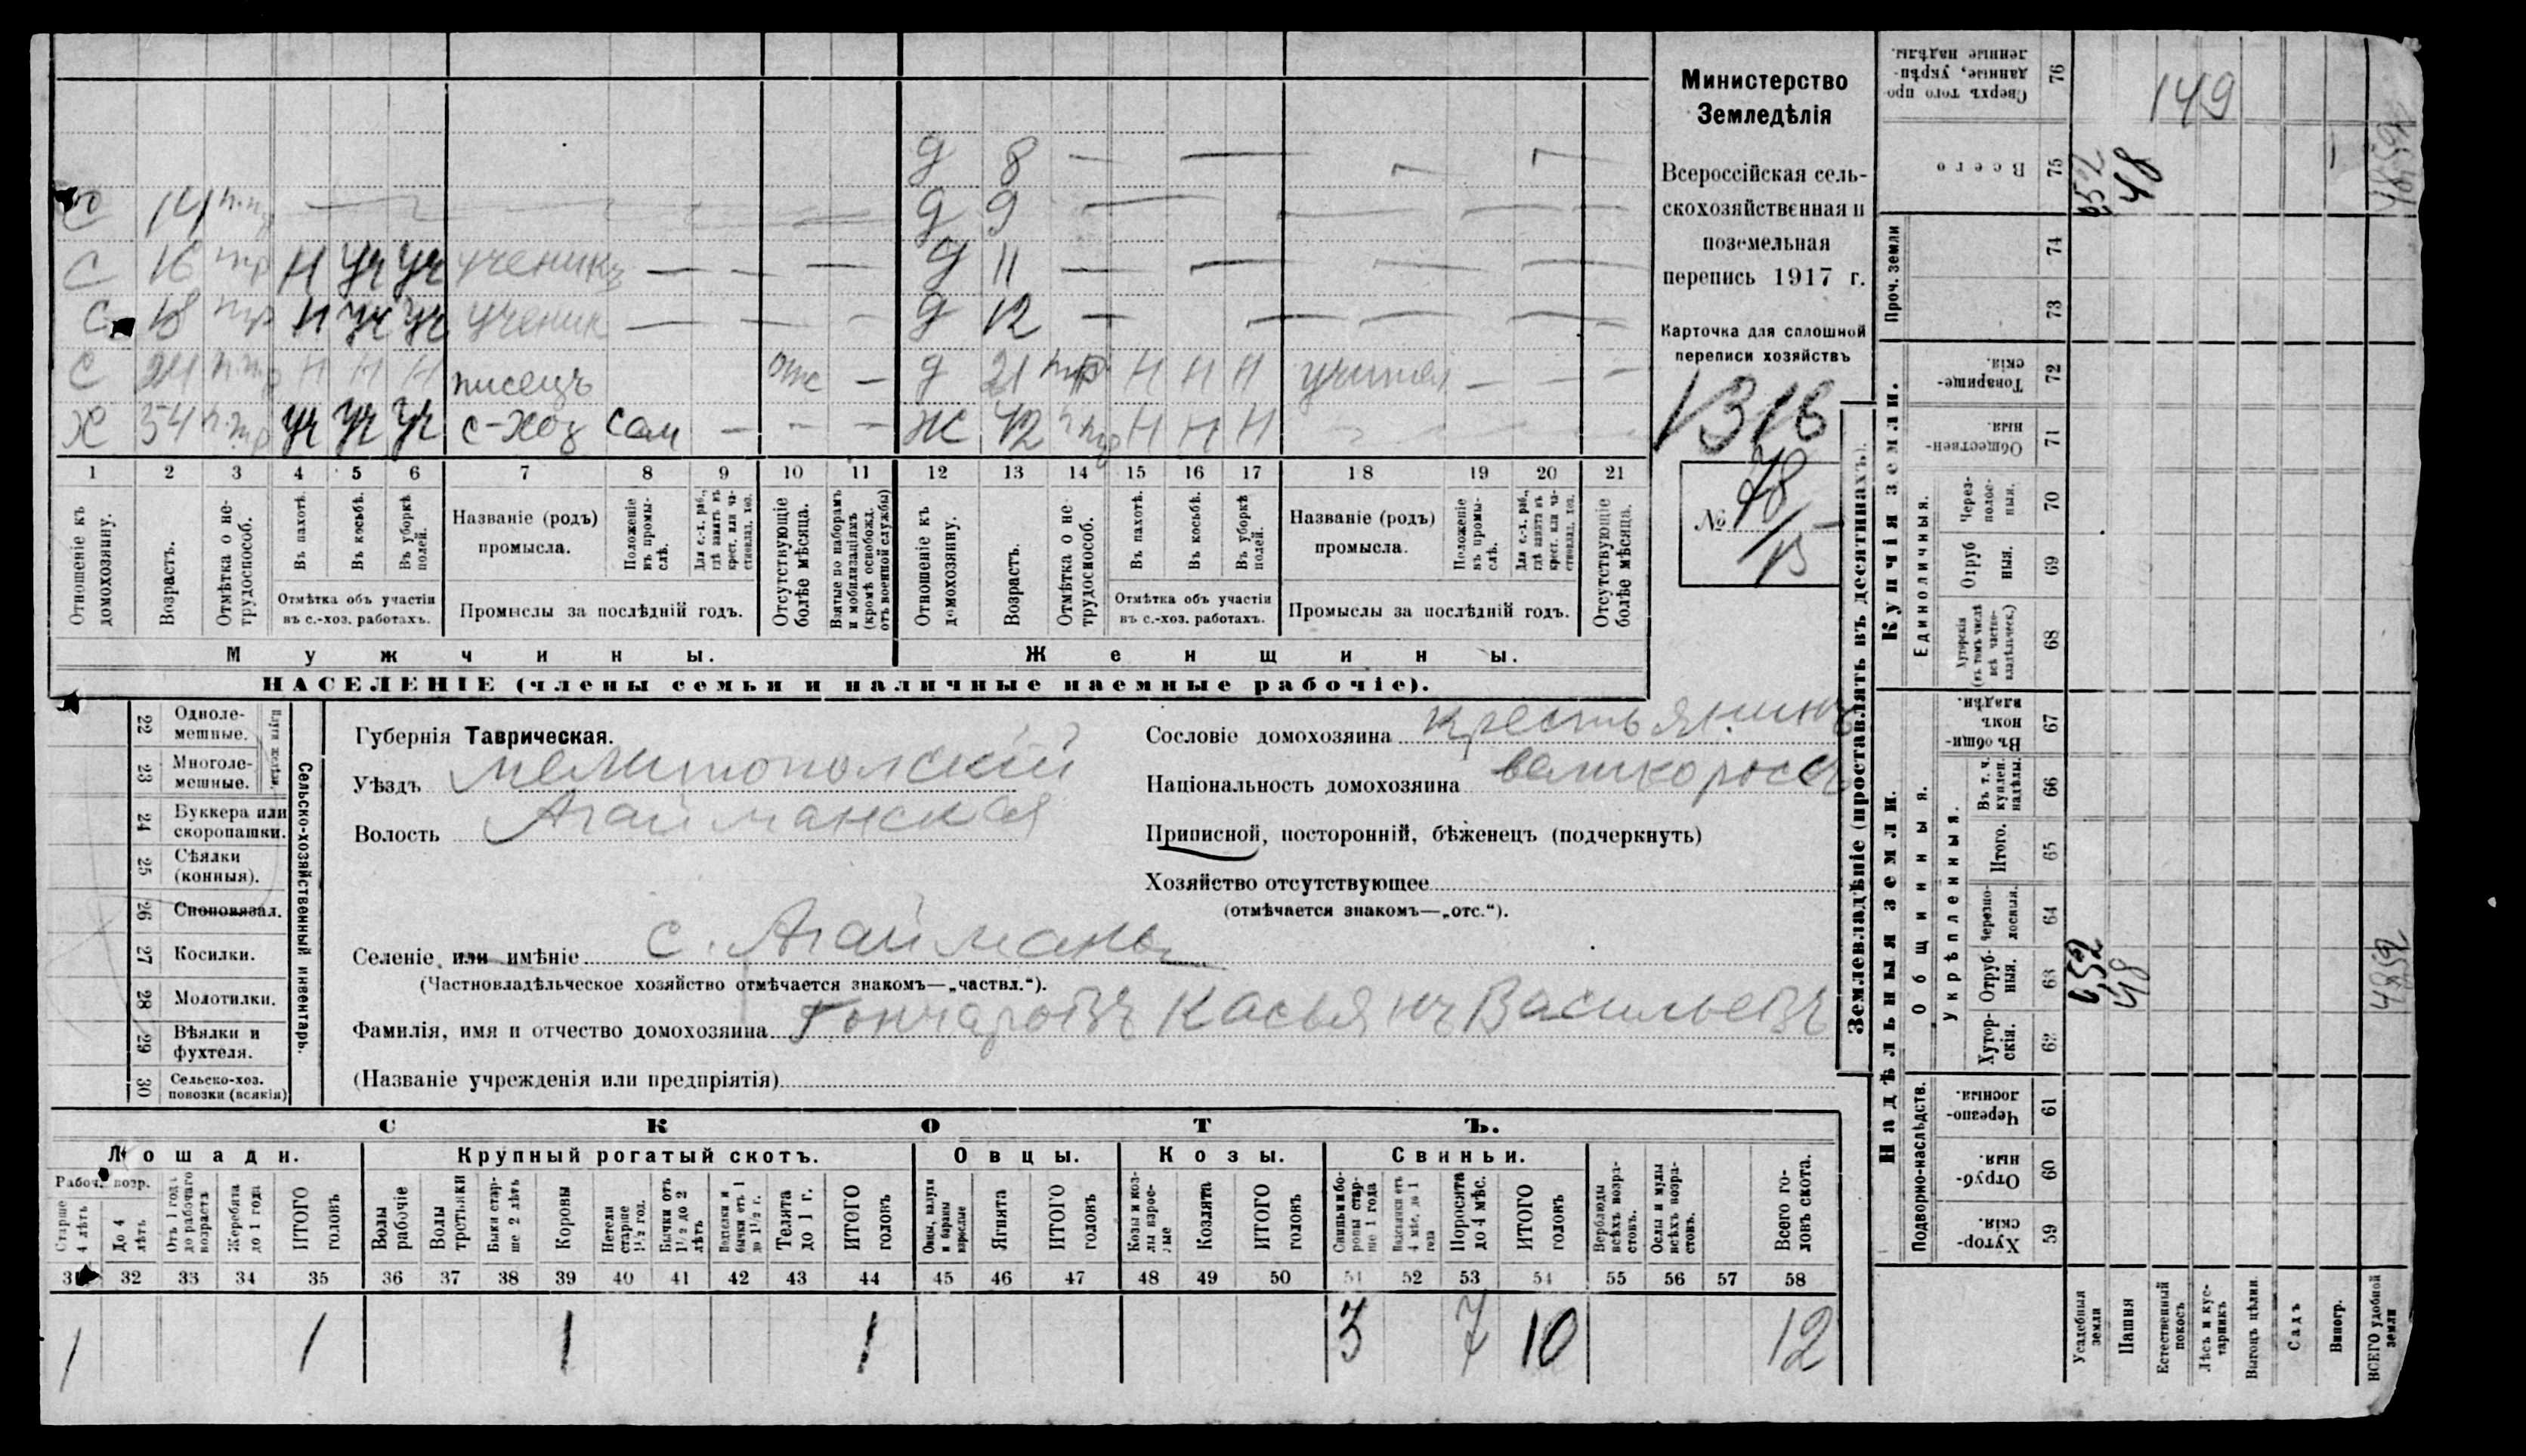 д 8 — — — —
С 14 н.тр — — — д 9 — — — —
С 16 нтр Н Уч Уч ученикъ — — — д 11 — — — —
С 18 нтр Н Уч Уч ученик — — — д 12 — — — —
С 24 н.тр Н Н Н писецъ отс — д 21 нтр Н Н Н — — —
Х 54 н.тр Уч Уч Уч с-хоз сам — — — Ж 42 Н Н Н
1 2 3 4 5 6 7 8 9 10 11 12 13 14 15 16 17 18 19 20 21
Отношеніе къ домохозяину.
Возрастъ.
Отмѣтка о нетрудоспособ.
Въ пахотѣ.
Въ косьбѣ.
Въ уборкѣ полей.
Отмѣтка объ участіи
въ с.-хоз. работахъ.
Названіе (родъ)
промысла.
Положеніе въ промыслѣ.
Для с.-х. раб., гдѣ занятъ въ крест. или частновлад. хоз.
Промыслы за послѣдній годъ.
Отсутствующіе болѣе мѣсяца.
Взятые по наборамъ и мобилизаціямъ (кромѣ освобожд. отъ военной службы)
Отношеніе къ домохозяину.
Возрастъ.
Отмѣтка о нетрудоспособ.
Въ пахотѣ.
Въ косьбѣ.
Въ уборкѣ полей.
Отмѣтка объ участіи
въ с.-хоз. работахъ.
Названіе (родъ)
промысла.
Положеніе въ промыслѣ.
Для с.-х. раб., гдѣ занята въ крест. или ча- хоз.
Промыслы за послѣдній годъ.
Отсутствующіе болѣе мѣсяца.
Мужчины.
Женщины.
НАСЕЛЕНІЕ (члены семьи и наличные наемные рабочіе).
Министерство
Земледѣлія
Всероссійская сель-
скохозяйственная и
поземельная
перепись 1917 г.
Карточка для сплошной
переписи хозяйствъ
1316
№ 78
/13
22 Одноле-
мешные.
23 Многоле-
мешные.
24 Буккера или
скоропашки.
25 Сѣялки
(конныя).
26 Сноповязал.
27 Косилки.
28 Молотилки.
29 Вѣялки и
фухтеля.
30 Сельско-хоз.
повозки (всякія)
Сельско-хозяйственный инвентарь.
Губернія Таврическая.
Уѣздъ Мелитопольскій
Волость Агайманская
Селеніе или имѣніе с. Агайманы
(Частновладѣльческое хозяйство отмѣчается знакомъ—„частвл.“).
Фамилія, имя и отчество домохозяина Гончаровъ Касьянъ Васильевъ
(Названіе учрежденія или предпріятія)
Сословіе домохозяина крестьянинъ
Національность домохозяина великороссъ
Приписной, посторонній, бѣженецъ (подчеркнуть)
Хозяйство отсутствующее
(отмѣчается знакомъ—„отс.“).
СКОТЪ.
Лошади.
Крупный рогатый скотъ.
Овцы.
Козы.
Свиньи.
Рабоч. возр.
Старше 4 лѣтъ
До 4 лѣтъ
Отъ 1 года до рабочаго возраста
Жеребята до 1 года
ИТОГО головъ
Волы рабочіе
Волы третьяки
Быки старше 2 лѣтъ
Коровы
Нетели старше 1½ год.
Бычки отъ 1½ до 2 лѣтъ
Подтелки и бычки отъ 1 до 1½ г.
Телята до 1 г.
ИТОГО головъ
Овцы, валухи и бараны взрослые
Ягнята
ИТОГО головъ
Козы и козлы взрослые
Козлята
ИТОГО головъ
Свиньи и боровы старше 1 года
Подсвинки отъ 4 мѣс. до 1 года
Поросята до 4 мѣс.
ИТОГО головъ
Верблюды всѣхъ возрастовъ.
Ослы и мулы всѣхъ возрастовъ.
Всего головъ скота.
31 32 33 34 35 36 37 38 39 40 41 42 43 44 45 46 47 48 49 50 51 52 53 54 55 56 57 58
1 1 1 1 3 7 10 12
Землевладѣніе (проставлять въ десятинахъ).
Надѣльныя земли.
Купчія земли.
Проч. земли
Подворно-наслѣдств.
Общинныя.
Укрѣпленныя.
Единоличныя.
Сверхъ того проданные, укрѣпленные надѣлы. 76
Всего 75
74
73
Товарищескія. 72
Общественныя. 71
Черезполосныя. 70
Отрубныя. 69
Хуторскія (въ томъ числѣ всѣ частновладѣльческ.) 68
Въ общинномъ владѣн. 67
Въ т. ч. куплен. надѣлы. 66
Итого. 65
Черезполосныя. 64
Отрубныя. 63
Хуторскія. 62
Черезполосныя. 61
Отрубныя. 60
Хуторскія. 59
Усадебныя земли
Пашня
Естественный покосъ
Лѣсъ и кустарникъ
Выгонъ цѣлин.
Садъ
Виногр.
ВСЕГО удобной земли
149
48
48